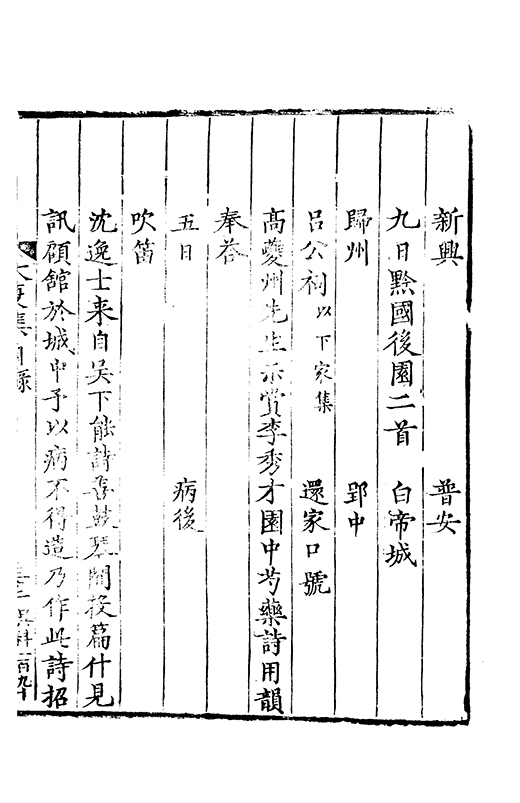 新興　普安
九日黔國後園二首　白帝城
歸州　郢中
呂公祠以下家集　還家口號
高夔州先生示賞李秀才園中芍藥詩用韻
奉荅
五日　病後
吹笛
沈逸士来自吴下能詩善鼓琴間投篇什見
訊顧舘於城中予以病不得造乃作此詩招
大復集目録
百九十